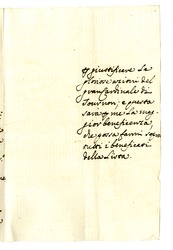 giustificare la
gloriose azioni del
gran Cardinale di
Tournon; e questa
sarà per me la mag-
gior beneficenza,
che possa farmi
tutti i beneficati
della Lista.